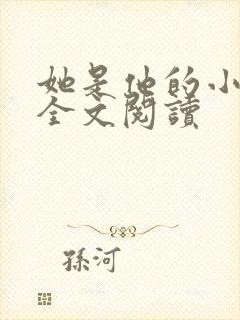 她是他的小
全文閱讀
孫河